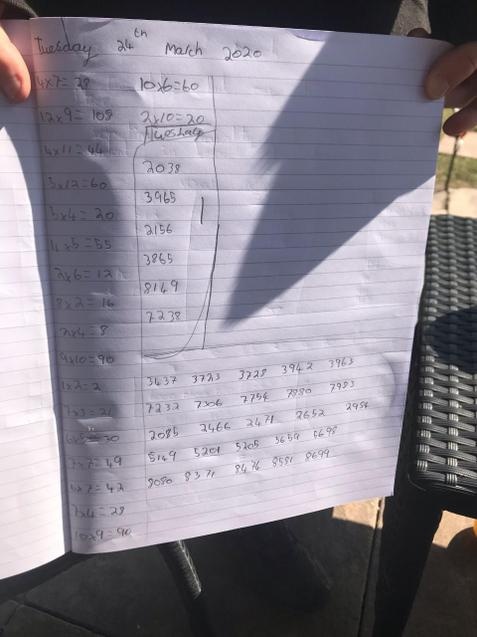 Tuesday 24th March 2020
4x7=28
12x9=108
4x11=44
5x12=60
5x4=20
11x5=55
2x6=12
8x2=16
2x4=8
9x10=90
1x2=2
7x3=21
6x5=30
7x7=49
6x7=42
7x4=28
10x9=90
10x6=60
2x10=20
Tuesday
2038
3965
2156
3865
8149
7238
3437 3723 3728 3942 3963
7232 7306 7754 7880 7983
2085 2466 2471 2652 2984
5149 5201 5205 5659 5698
8080 8371 8476 8581 8699